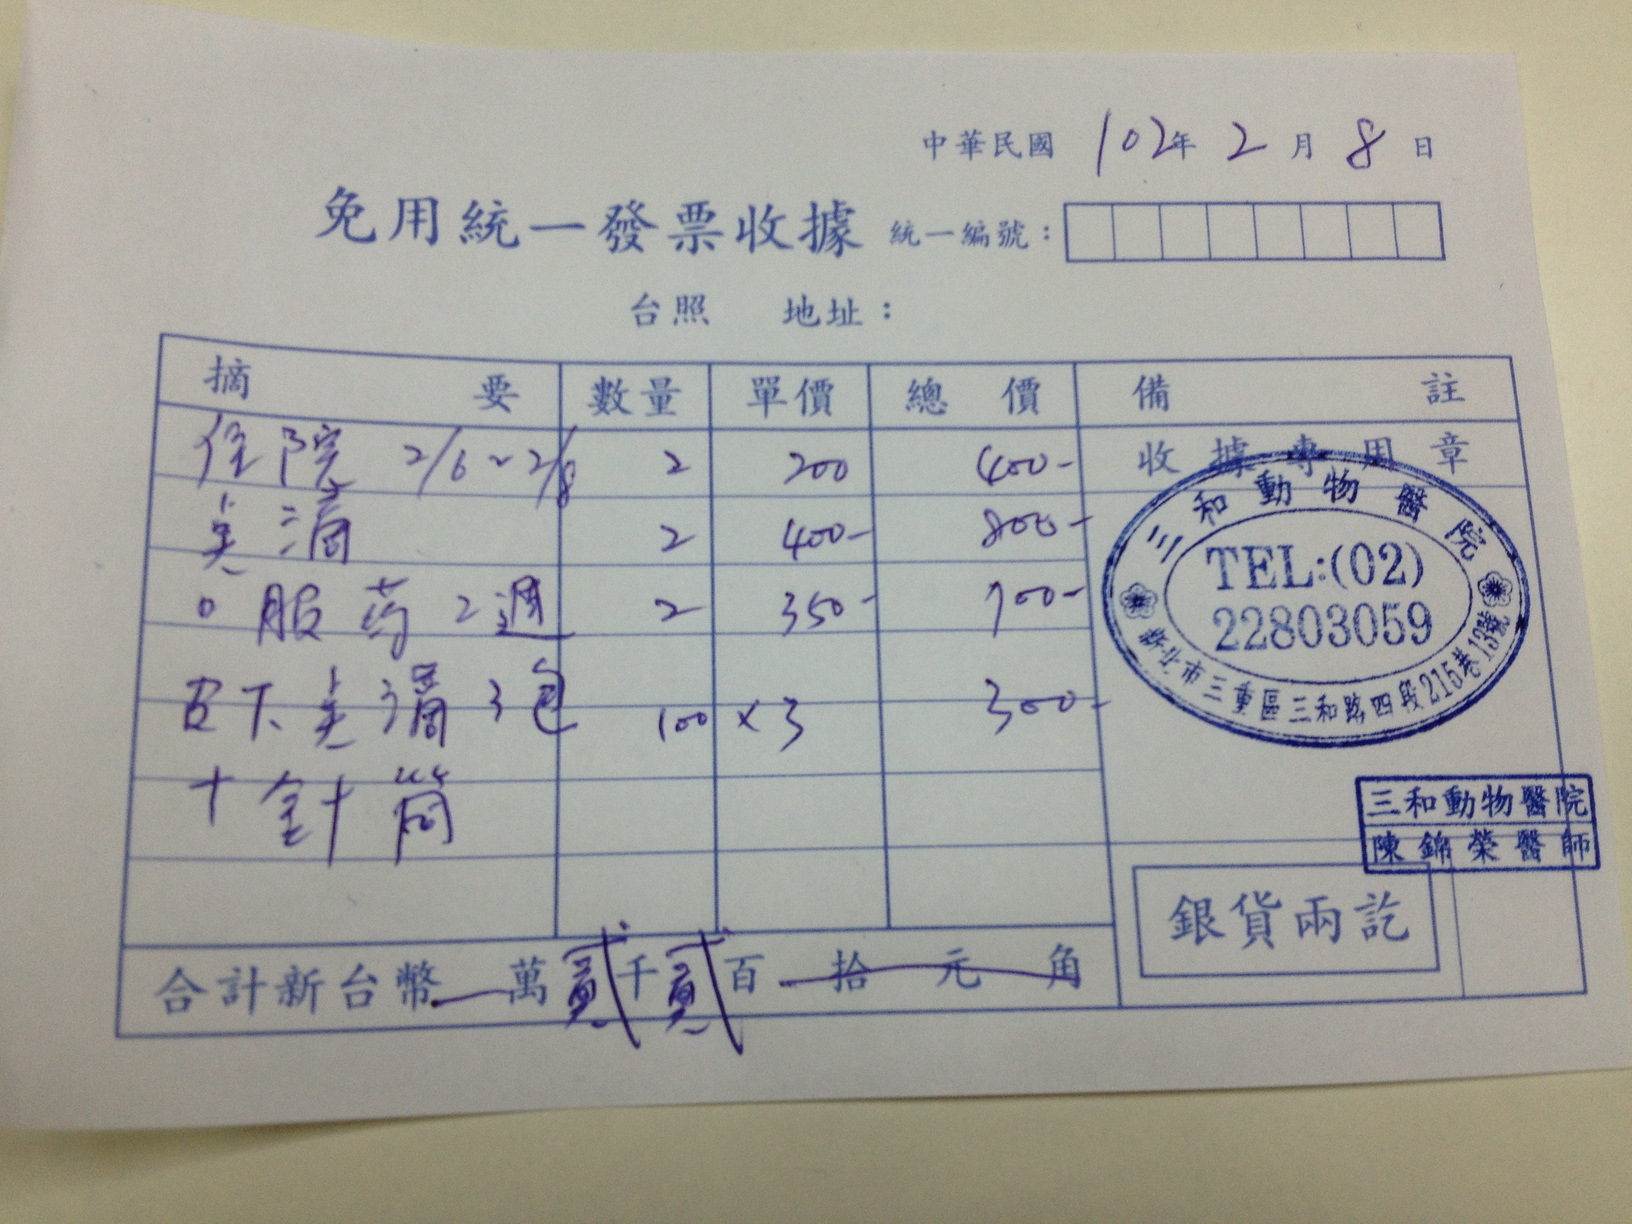 中華民國 102年 2月 8日
免用統一發票收據 統一編號:
台照 地址:
摘要 數量 單價 總價 備註
住院 2/6~2/8 2 200 400- 收據專用章
点滴 2 400- 800-
口服药2週 2 350- 700-
皮下点滴3包 100 x 3 300-
十針筒
三和動物醫院
TEL:(02)
22803059
新北市三重區三和路四段215巷13號
三和動物醫院
陳錦榮醫師
銀貨兩訖
合計新台幣 萬貳千貳百 拾 元 角